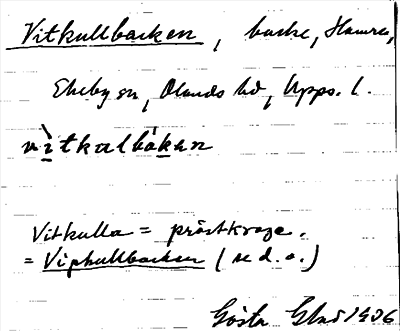 Vitkullbacken, backe, Hamra,
Ekeby sn, Olands hd, Upps. l.
vìtkalbàkan
Vitkulla = prästkrage.
= Vipkullbacken (se d. o.)
Gösta 1906